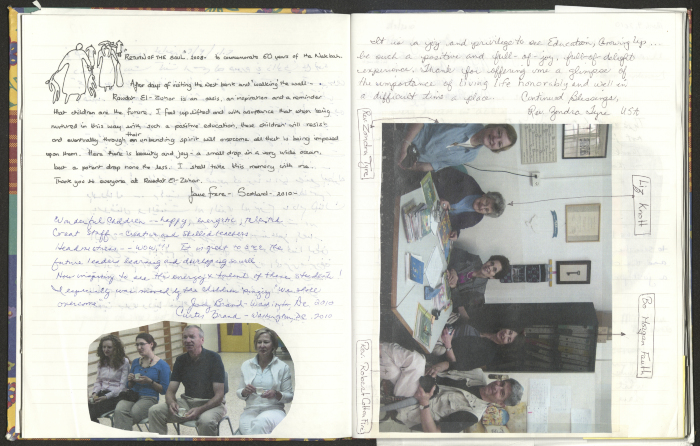 RETURN OF THE SOUL. 2008 - to commemorate 60 years of the Nakbah.
After days of visiting the West Bank and "walking the wall" - -
Rawdat El-Zuhur is an oasis, an inspiration and a reminder
that children are the future. I feel so uplifted and with assurance that when being
nurtured in this way with such a positive education, these children will resist
and eventually through their unbending spirit will overcome all that is being imposed
upon them. Here there is beauty and joy - a small drop in a very wide ocean,
but a potent drop none the less. I shall take this memory with me...
Thank you to everyone at Rawdat El-Zuhur.
Jane Frere - Scotland - 2010 -
Wonderful Children -- happy, energetic,
Great Staff -- Creative and skilled teachers
Headmistress -- WOW!!! It is great to see the
future leaders learning and developing so well
How inspiring to see the energy & talent of these students!
I especially was moved by the children "singing" was
overcome. Judy Brand - Washington DC. 2010
Curtis Brand - Washington, DC. 2010
It is a joy and privilege to see Education, Growing Up...
be such a positive and full-of-joy, full-of-delight
experience. Thank you for offering me a glimpse of
the importance of living life honorably and well in
a difficult time & place. Continued Blessings,
Rev. Zendra Tyre USA
Rev. Zendra Tyre
Liz Knott
Rev. Robert